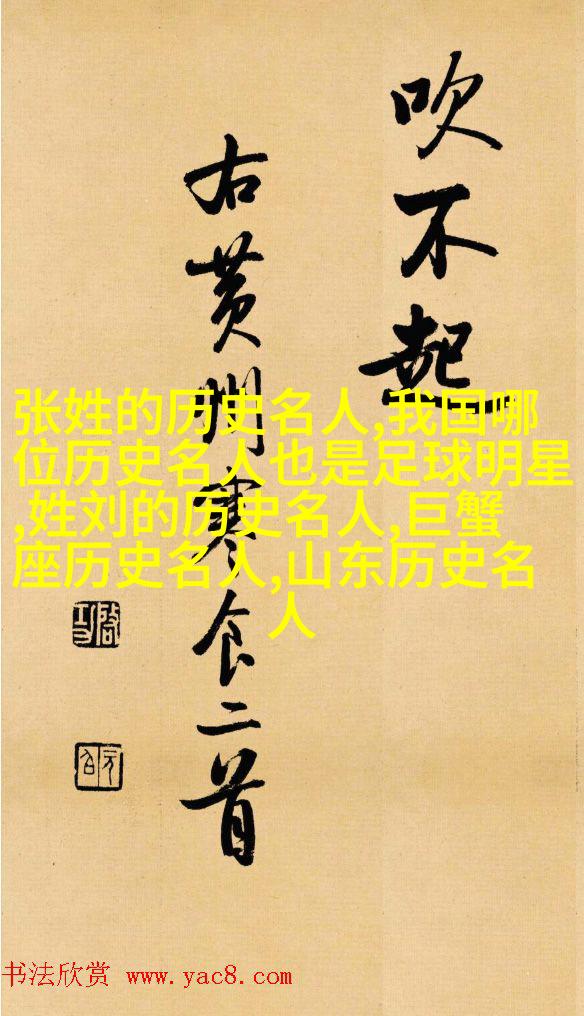 吹不起
右黄州寒食二首
张姓的历史名人,我国哪
位历史名人也是足球明星
,姓刘的历史名人,巨蟹
座历史名人,山东历史名
人
启功
元白
书法欣赏 www.yac8.com